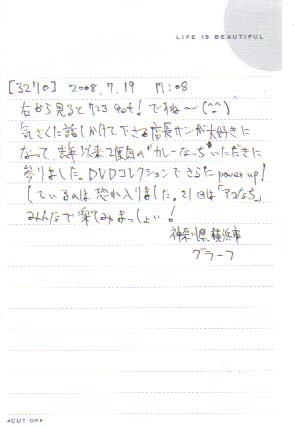 LIFE IS BEAUTIFUL
[3270] 2008.7.19 17:08
右から見ると723 got! ですね〜(^-^)
気さくに話しかけて下さる店長サンが大好きに
なって、去年以来2度目の"カレーなっち"いただきに
参りました。DVDコレクションでさらにpower up!
しているのは恐れ入りました。21日は「アコなち」
みんなで楽しみまっしょい!
神奈川県横浜市
グラーフ
CUT OFF